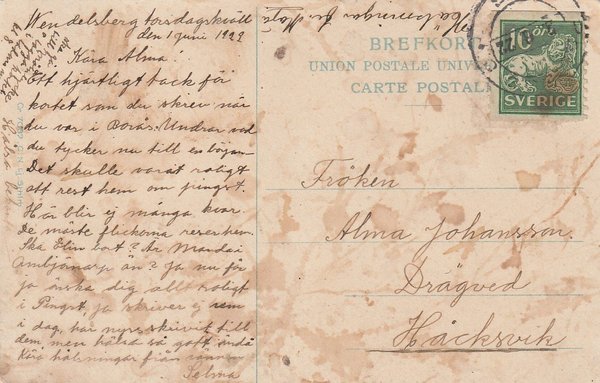 Wendelsberg torsdagskväll
den 1 juni 1922
Kära Alma.
Ett hjärtligt tack för
kortet som du skrev när
du var i Borås. Undrar vad
du tycker nu till en början
Det skulle varit roligt
att rest hem om pingst.
Här blir ej många kvar.
De mäste flickorna reser hem.
Ska Elin bort? Är Manda i
än? Ja nu får
ja önska dig allt roligt
i Pingst, ja skriver ej mer
i dag, har nyss skrivit till
dem, men hälsa så gott ändå
Kära hälsningar från
Selma
Hälsningar fr. Maja
BREFKORT
UNION POSTALE UNIVE
CARTE POSTALE
10 ÖRE
SVERIGE
Fröken
Alma Johansson
Drägved
Håcksvik